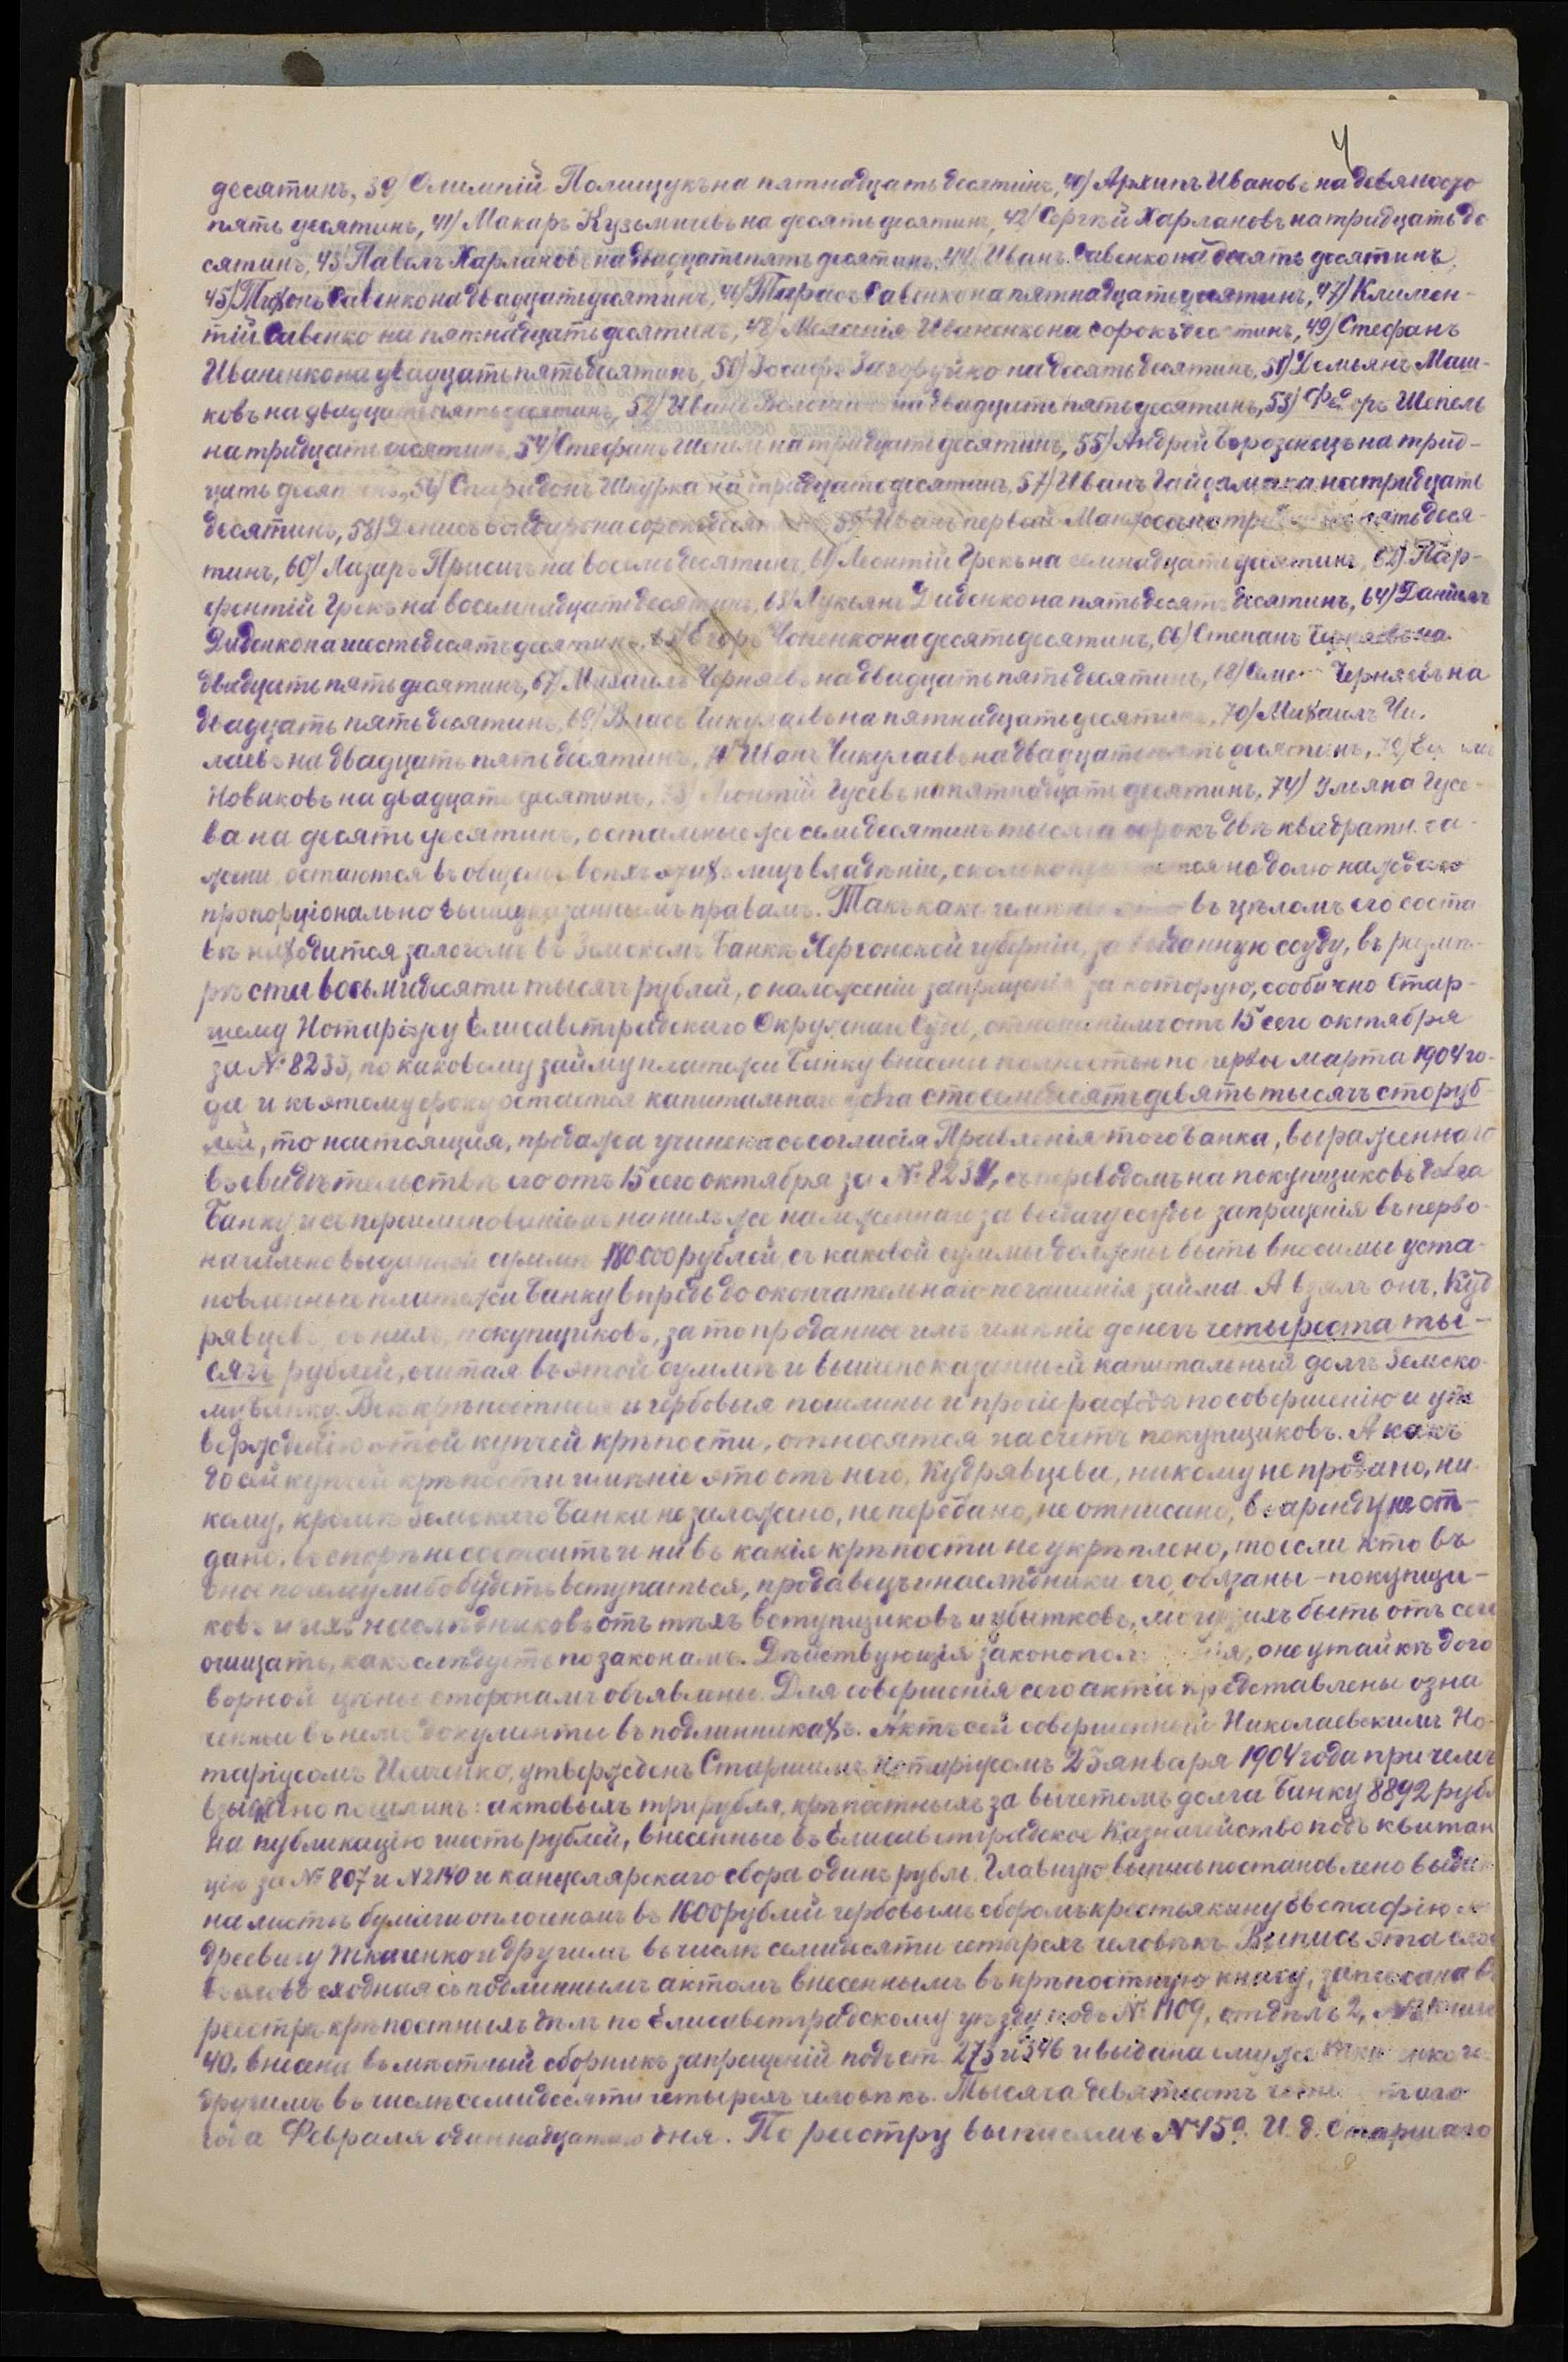 4
десятинъ, 39/ Олимпій Полищукъ на пятнадцать десятинъ, 40/ Архипъ Ивановъ на девяносто
пять десятинъ, 41/ Макаръ Кузьмичевъ на десять десятинъ, 42/ Сергѣй Харлановъ на тридцать де
сятинъ, 43/ Павелъ Харлановъ на двадцать пять десятинъ, 44/ Иванъ Савенко на десять десятинъ,
45/ Тихонъ Савенко на двадцать десятинъ, 46/ Тарасъ Савенко на пятнадцать десятинъ, 47/ Климен-
тій Савенко на пятнадцать десятинъ, 48/ Меланія Иваненко на сорокъ десятинъ, 49/ Стефанъ
Иваненко на двадцать пять десятинъ, 50/ Іосифъ Загоруйко на десять десятинъ, 51/ Демьянъ Маш-
ковъ на двадцать пять десятинъ, 52/ Иванъ на двадцать пять десятинъ, 53/ Федоръ Шепель
на тридцать десятинъ, 54/ Стефанъ Шепель на тридцать десятинъ, 55/ Андрей Борозенецъ на трид-
цать десятинъ, 56/ Спиридонъ Шкурка на тридцать десятинъ, 57/ Иванъ Гайдамака на тридцать
десятинъ, 58/ Денисъ Бондарь на сорокъ десятинъ, 59/ Иванъ первый на тридцать пять деся-
тинъ, 60/ Лазарь Присичъ на восемь десятинъ, 61/ Леонтій Грекъ на семнадцать десятинъ, 62/ Пар-
фентій Грекъ на восемнадцать десятинъ, 63/ Лукьянъ Диденко на пятьдесятъ десятинъ, 64/ Даніилъ
Диденко на шестьдесятъ десятинъ, 65/ Егоръ Чопенко на десять десятинъ, 66/ Степанъ Черняевъ на
двадцать пять десятинъ, 67/ Михаилъ Черняевъ на двадцать пять десятинъ, 68/ Семенъ Черняевъ на
двадцать пять десятинъ, 69/ Власъ Чикулаевъ на пятнадцать десятинъ, 70/ Михаилъ Чи.
лаевъ на двадцать пять десятинъ, 71/ Иванъ Чикулаевъ на двадцать пять десятинъ, 72/
Новиковъ на двадцать десятинъ, 73/ Леонтій Гусевъ на пятнадцать десятинъ, 74/ Ульяна Гусе-
ва на десять десятинъ, остальные же семь десятинъ тысяча сорокъ двѣ квадратн. са-
жени остаются въ общемъ всѣхъ этихъ лицъ владѣніи, сколько причтется на долю каждаго
пропорціонально вышеуказаннымъ правамъ. Такъ какъ имѣніе это въ цѣломъ его соста
вѣ находится залогомъ въ Земскомъ Банкѣ Херсонской губерніи, за выданную ссуду, въ размѣ-
рѣ ста восьмидесяти тысячъ рублей, о наложеніи запрещенія за которую, сообщено Стар-
шему Нотаріусу Елисаветградскаго Окружнаго Суда, отношеніемъ отъ 15 сего октября
за № 8233, по каковому займу платежи Банку внесены полностью по первое марта 1904 го-
да и къ этому сроку остается капитальнаго долга сто семьдесятъ девять тысячъ сто руб-
лей, то настоящая, продажа учинена съ согласія Правленія того Банка, выраженнаго
въ свидѣтельствѣ его отъ 15 сего октября за № 8234, съ переводомъ на покупщиковъ долга
Банку и съ переименованіемъ на нихъ же наложеннаго за выдачу ссуды запрещенія въ перво-
начально выданной суммѣ 180000 рублей, съ каковой суммы должны быть вносимы уста-
новленные платежи Банку впредь до окончательнаго погашенія займа. А взялъ онъ, Куд
рявцевъ, съ нихъ, покупщиковъ, за то проданное имъ имѣніе денегъ четыреста ты-
сячъ рублей, считая въ этой суммѣ и вышепоказанный капитальный долгъ Земско-
му Банку. Всѣ крѣпостныя и гербовыя пошлины и прочіе расходы по совершенію и утъ
вержденію этой купчей крѣпости, относятся на счетъ покупщиковъ. А какъ
до сей купчей крѣпости имѣніе это отъ него, Кудрявцева, никому не продано, ни
кому, кромѣ Земскаго Банка не заложено, не передано, не отписано, въ аренду не от-
дано, въ спорѣ не состоитъ и ни въ какія крѣпости не укрѣплено, то если кто въ
оное почему либо будетъ вступаться, продавецъ и наслѣдники его, обязаны - покупщи-
ковъ и ихъ наслѣдниковъ отъ тѣхъ вступщиковъ и убытковъ, могущихъ быть отъ сего
очищать, какъ слѣдуетъ по законамъ. Дѣйствующія законоположенія, о не утайкѣ дого
ворной цѣны сторонамъ объявлены. Для совершенія сего акта представлены озна
ченные въ немъ документы въ подлинникахъ. Актъ сей совершенный Николаевскимъ Но-
таріусомъ Ивченко, утвержденъ Старшимъ Нотаріусомъ 25 января 1904 года при чемъ
взыскано пошлинъ: актовыхъ три рубля, крѣпостныхъ за вычетомъ долга Банку 8892 рубл
на публикацію шесть рублей, внесенные въ Елисаветградское Казначейство подъ квитан
цію за № 807 и № 2140 и канцелярскаго сбора одинъ рубль. Главную выпись постановлено выдать
на листѣ бумаги оплоченомъ въ 1600 рублей гербовымъ сборомъ крестьянину Евстафію
дреевичу Ткаченко и другимъ въ числѣ семидесяти четырехъ человѣкъ. Выпись эта слово
въ слово сходная съ подлиннымъ актомъ внесеннымъ въ крѣпостную книгу, записана въ
реестръ крѣпостныхъ дѣлъ по Елисаветградскому уѣзду подъ № 1109, отдѣлъ 2, книги
40, внесена въ мѣстный сборникъ запрещеній подъ ст. 275 и 346 и выдана ему же Ткаченко и
другимъ въ числѣ семидесяти четырехъ человѣкъ. Тысяча девятьсотъ четвертаго
года Февраля одиннадцатаго дня. По реестру выписямъ № 159. И. д. Старшаго